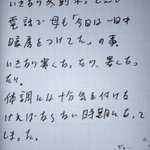 電話で母も「今日は一日中
暖房をつけてた。」の裏
いきなり寒くなったり、暑くなっ
たり。
体調には十分気を付ける
ければならない時期になって
しまった。